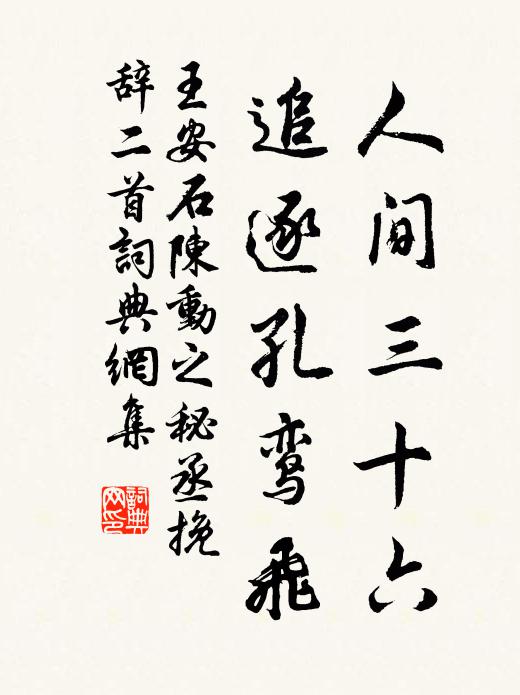 人间三十六
追逐孔鸾飛
王安石陳動之秘丞挽
辞二首詞典網集
詞典
网印